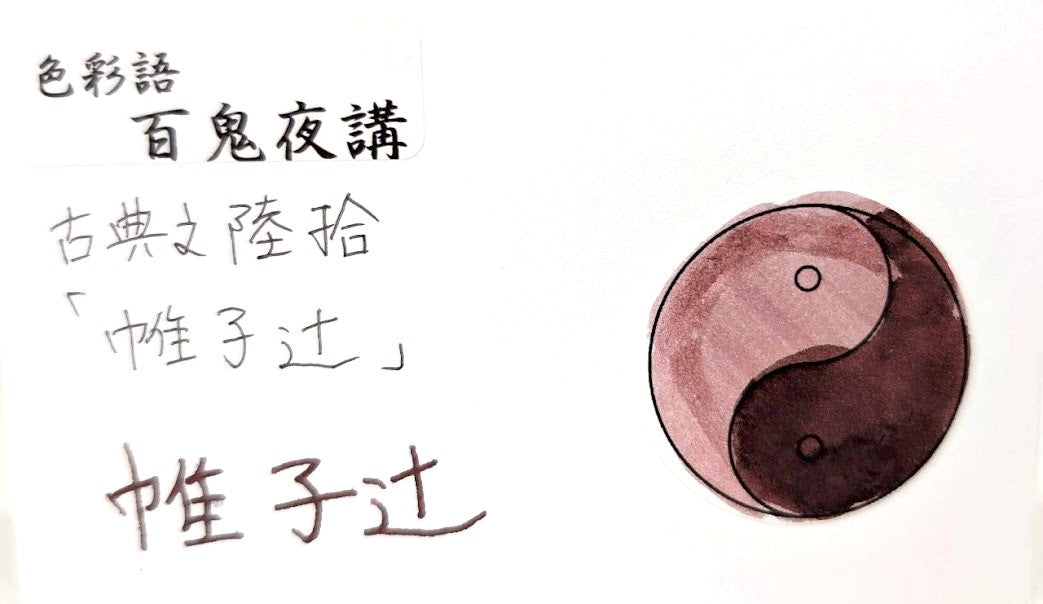 色彩語
百鬼夜講
古典文陸拾
「帷子辻」
帷子辻